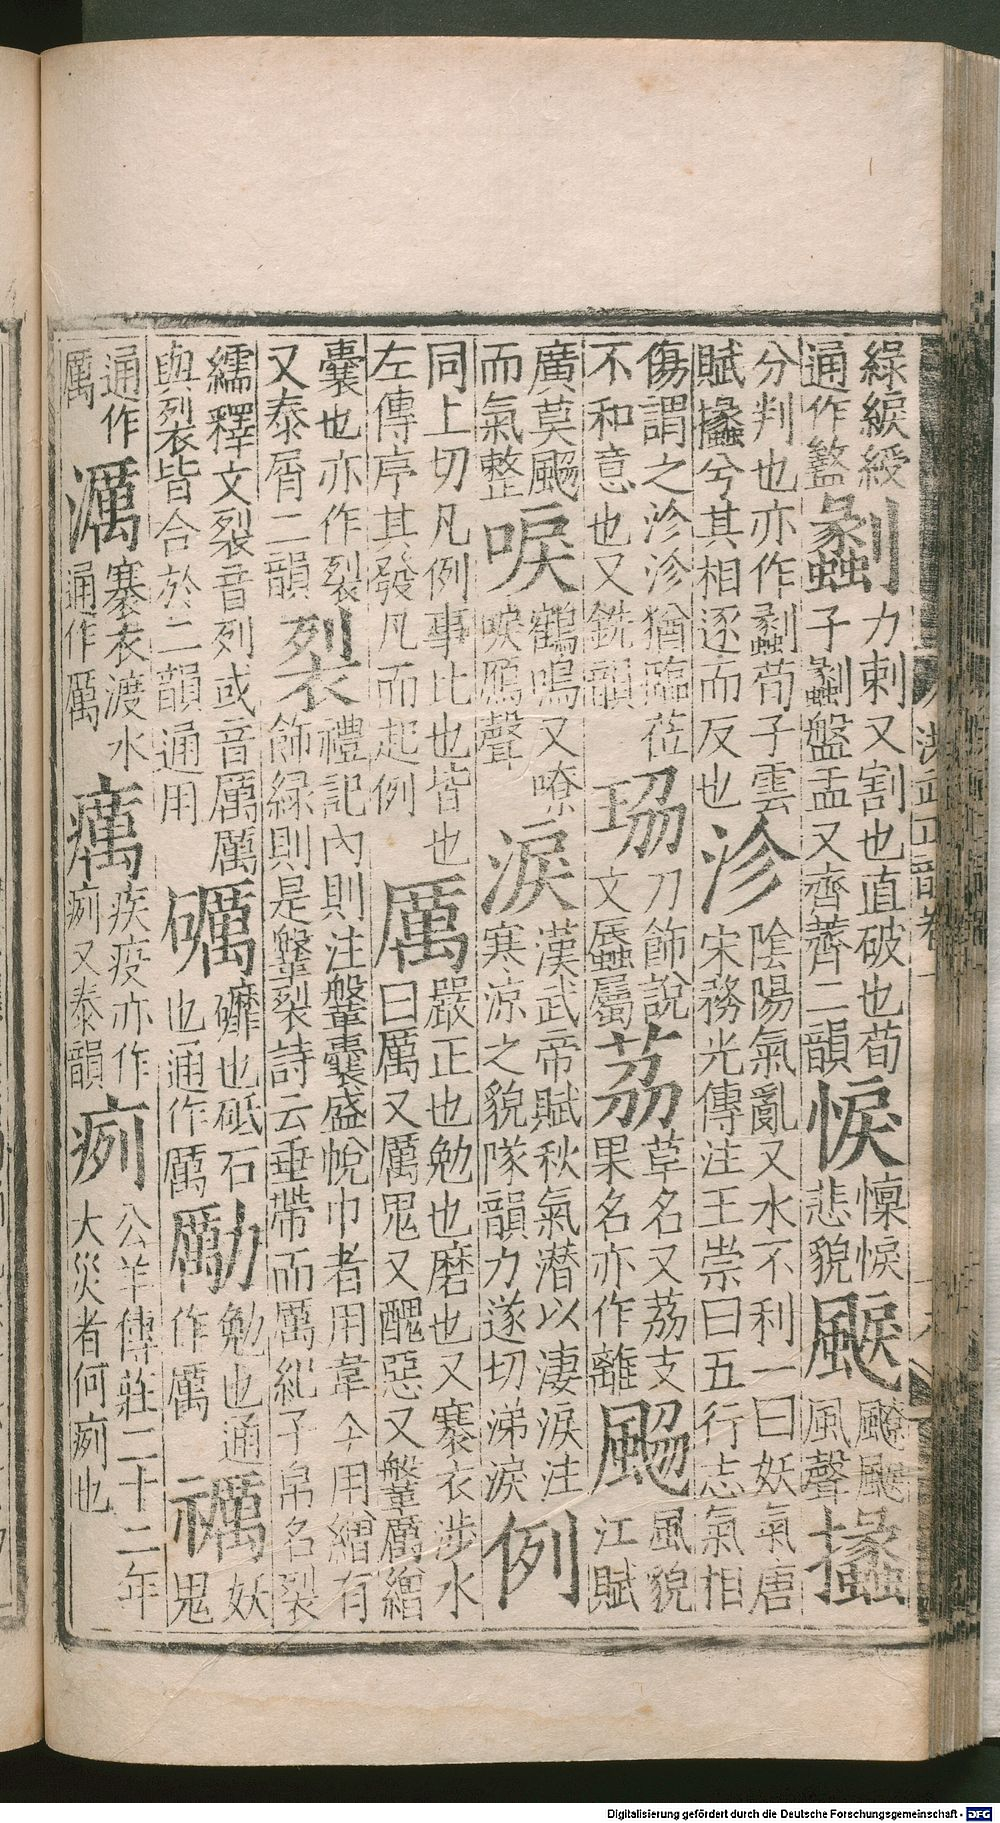 綠綟綬
通作盭
劙
力刺又割也直破也荀
子劙盤盂又齊薺二韻
悷
懍悷
悲貌
䬆
飉䬆
風聲
攭
分判也亦作劙荀子雲
賦攭兮其相逐而反也
沴
陰陽氣亂又水不利一曰妖氣唐
宋務光傳注王崇曰五行志氣相
傷謂之沴沴猶臨莅
不和意也又銑韻
珕
刀飾說
文蜃屬
茘
草名又茘支
果名亦作離
颲
風貌
江賦
廣莫颲
而氣整
唳
鶴鳴又嘹
唳鴈聲
淚
漢武帝賦秋氣潛以淒淚注
寒涼之貌隊韻力遂切涕淚
例
同上切凡例事比也皆也
左傳序其發凡而起例
厲
嚴正也勉也磨也又褰衣涉水
曰厲又厲鬼又醜惡又鞶厲繒
囊也亦作裂
又泰屑二韻
裂
禮記內則注鞶囊盛帨巾者用韋今用繒有
飾緣則是鞶裂詩云垂帶而厲紀子帛名裂
繻釋文裂音列或音厲厲
與裂皆合於二韻通用
礪
礲也砥石
也通作厲
勵
勉也通
作厲
禲
妖
鬼
通作
厲
濿
褰衣渡水
通作厲
癘
疾疫亦作
㾐又泰韻
㾐
公羊傳莊二十二年
大災者何㾐也
Digitalisierung gefördert durch die Deutsche Forschungsgemeinschaft - DFG